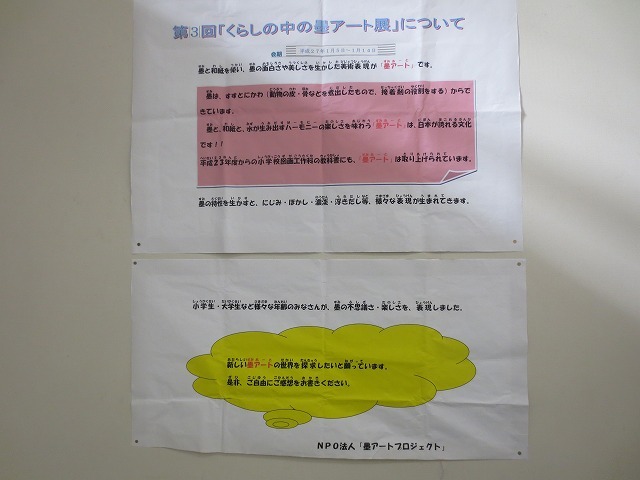 第3回「くらしの中の墨アート展」について
会期 平成27年1月5日~1月16日
墨と和紙を使い、墨の面白さや美しさを生かした美術表現が「墨アート」です。
墨は、すすとにかわ(動物の皮・骨などを煮出したもので、接着剤の役割をする)からで
きています。
墨と、和紙と、水が生み出すハーモニーの楽しさを味わう「墨アート」は、日本が誇れる文化
です!!
平成23年度からの小学校図画工作科の教科書にも、「墨アート」は取り上げられています。
墨の特性を生かすと、にじみ・ぼかし・濃淡・浮きだし等、様々な表現が生まれてきます。
小学生・大学生など様々な年齢のみなさんが、墨の不思議さ・楽しさを、表現しました。
新しい墨アートの世界を探求したいと願っています。
是非、ご自由にご感想をお書きください。
NPO法人「墨アートプロジェクト」